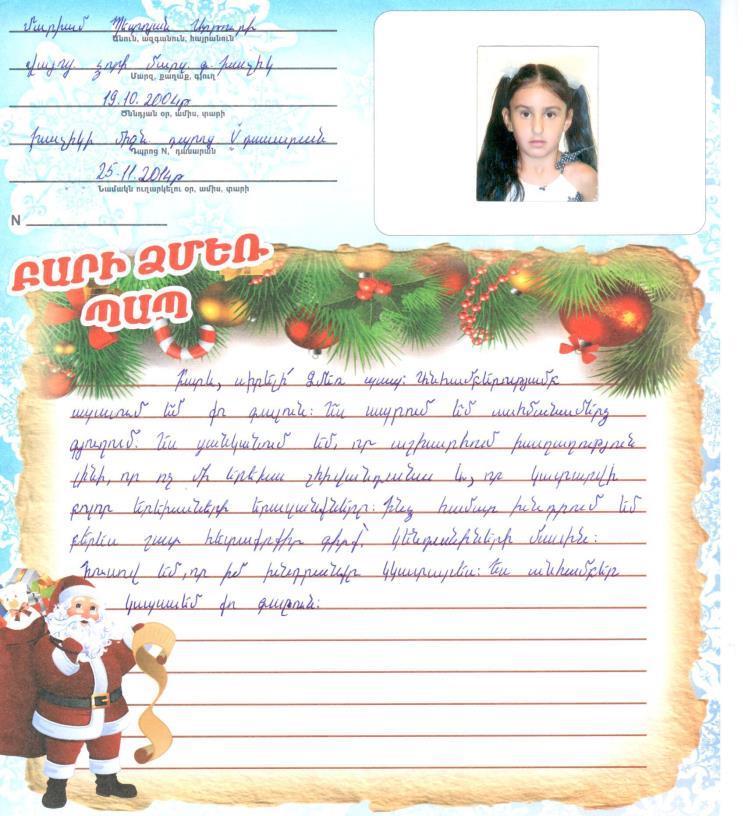 Մարիամ Պետրոսյան Արթուրի
Անուն, ազգանուն, հայրանուն
Վայոց ձորի մարզ գ. Խաչիկ
Մարզ, քաղաք, գյուղ
19.10.2004թ
Ծննդյան օր, ամիս, տարի
Խաչիկի միջն. դպրոց V դասարան
Դպրոց N, դասարան
25.11.2014թ
Նամակն ուղարկելու օր, ամիս, տարի
N
ԲԱՐԻ ՁՄԵՌ
ՊԱՊ
Բարև, սիրելի՛ Ձմեռ պապ: Անհամբերությամբ
սպասում եմ քո գալուն: Ես ապրում եմ սահմանամերձ
գյուղում: Ես ցանկանում եմ, որ աշխարհում խաղաղություն
լինի, որ ոչ մի երեխա չհիվանդանա և, որ կատարվի
բոլոր երեխաների երազանքները: Ինձ համար խնդրում եմ
բերես շատ հետաքրքիր գիրք, կենդանիների մասին:
Հուսով եմ, որ իմ խնդրանքը կկատարես: Ես անհամբեր
կսպասեմ քո գալուն: